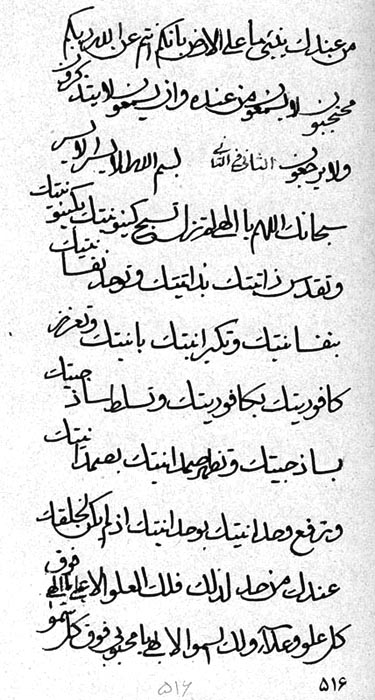 من عندك ينبئ ما على الارض بانكم انتم عن الله ربكم
محتجبون لا يسمعون من عنده وان يسمعون لا يتذكرون
ولا يرجعون الثانى فى الثانى بسم الله الايسر الايسر
سبحانك اللهم يا الهى لم تزل تسبح كينونيتك بكينونيتك
وتقدس ذاتيتك بذاتيتك وتوحد نفسانيتك
بنفسانيتك وتكبر انيتك بانيتك وتعزز
كافوريتك بكافوريتك وتسلط ساذجيتك
بساذجيتك وتظهر صمدانيتك بصمدانيتك
وترفع وحدانيتك بوحدانيتك اذ لم يكن لخلقك
عندك من حد لذلك فلك العلو الاعلى يا الهى فوق
كل علو وعلاء ولك السمو الابهى يا محبوبى فوق كل سمو
۵۱۶ ۵۱۶